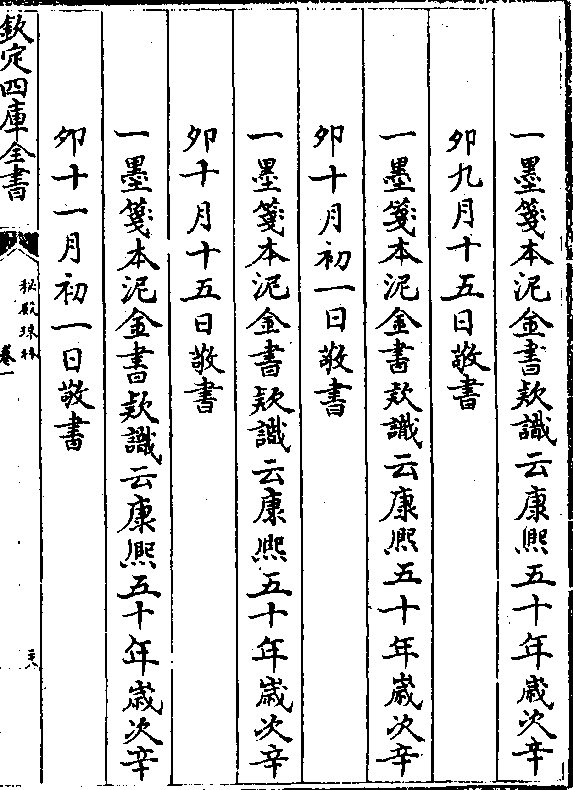 一墨箋本泥金書款識云康熙五十年歲次辛
卯九月十五日敬書
一墨箋本泥金書款識云康熙五十年歲次辛
卯十月初一日敬書
一墨箋本泥金書款識云康熙五十年歲次辛
卯十月十五日敬書
一墨箋本泥金書款識云康熙五十年歲次辛
卯十一月初一日敬書
欽定四庫全書
秘殿珠林
卷一